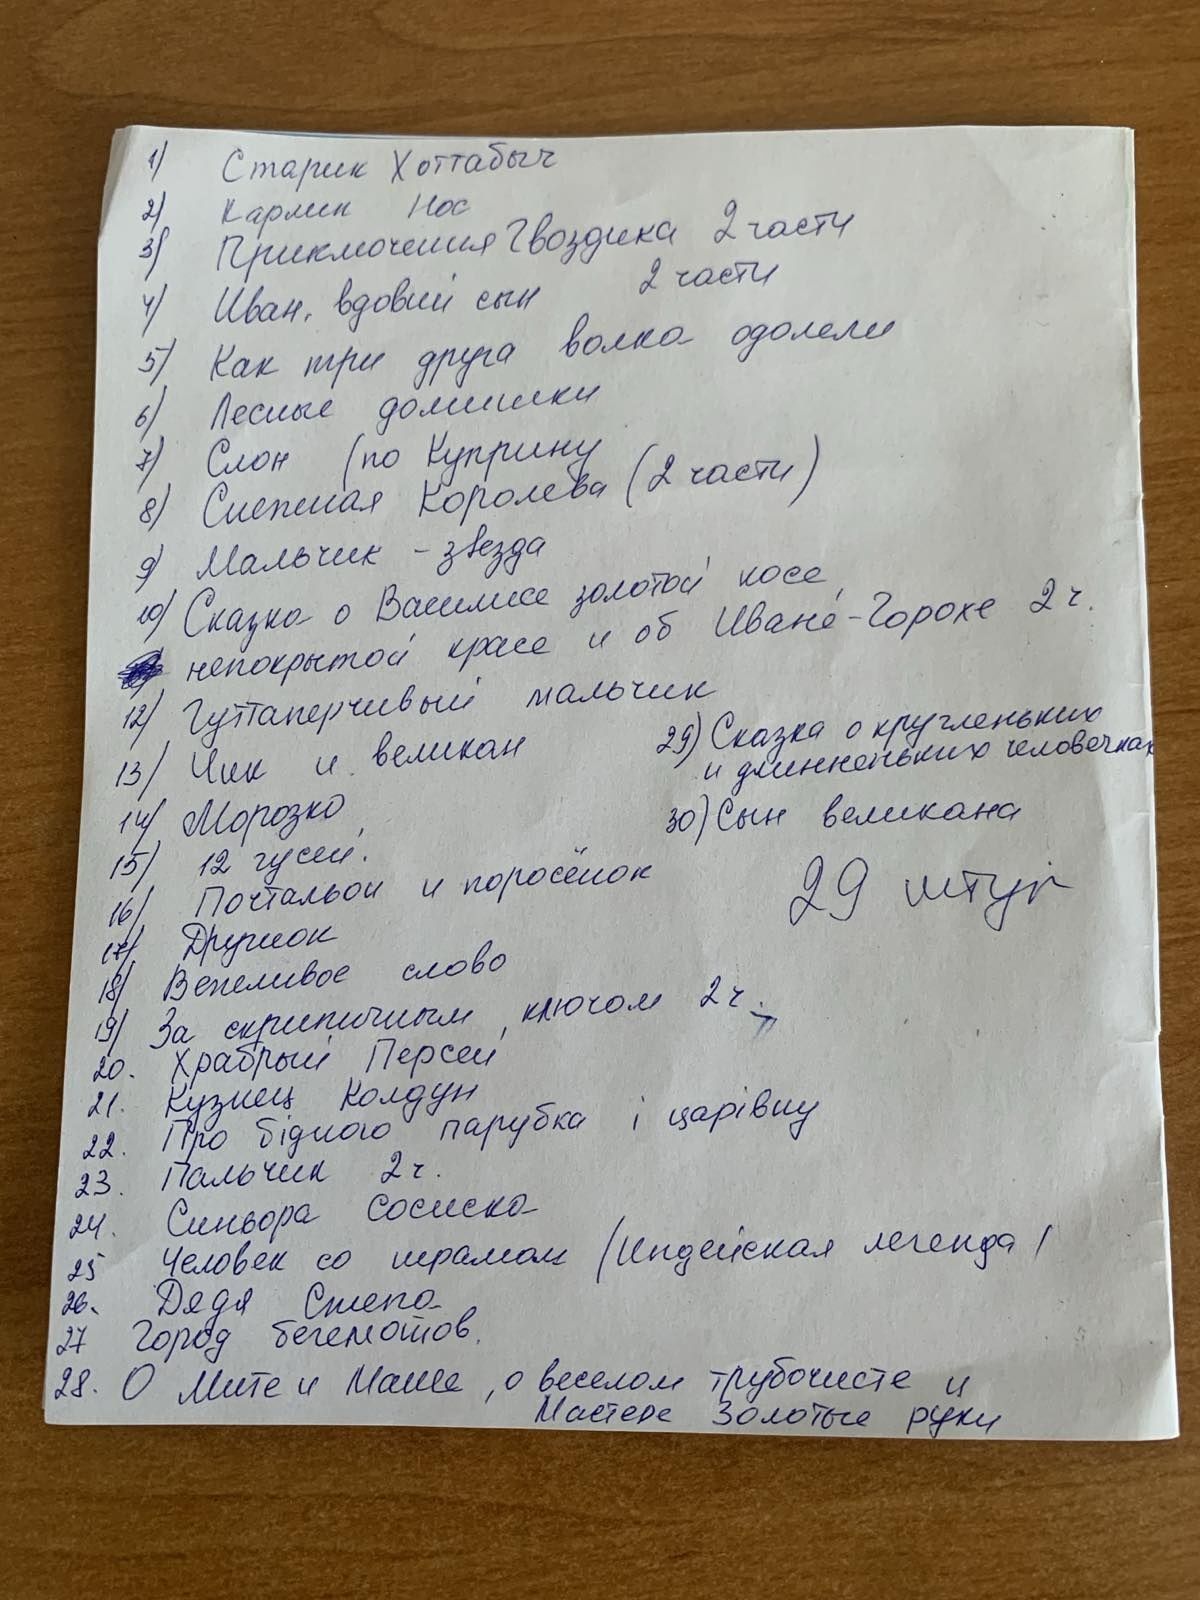 1) Старик Хоттабыч
2) Карлик Нос
3) Приключения Гвоздика 2 части
4) Иван, вдовий сын 2 части
5) Как три друга волка одолели
6) Лесные домишки
7) Слон (по Куприну
8) Снежная Королева (2 части)
9) Мальчик - звезда
10) Сказка о Василисе золотой косе,
непокрытой красе и об Иване-Горохе 2 ч.
12) Гуттаперчивый мальчик
13) Чик и великан
14) Морозко
15) 12 гусей.
16) Почтальон и поросёнок
17) Дружок
18) Вежливое слово
19) За скрипичным ключом 2 ч.
20. Храбрый Персей
21. Кузнец Колдун
22. Про бідного парубка і царівну
23. Пальчик 2 ч.
24. Синьора Сосиска
25 Человек со шрамом (Индейская легенда)
26. Дядя Степа
27 Город бегемотов.
28. О Мите и Маше, о веселом трубочисте и
Мастере Золотые руки
29) Сказка о кругленьких
и длинненьких человечках
30) Сын великана
29 штук